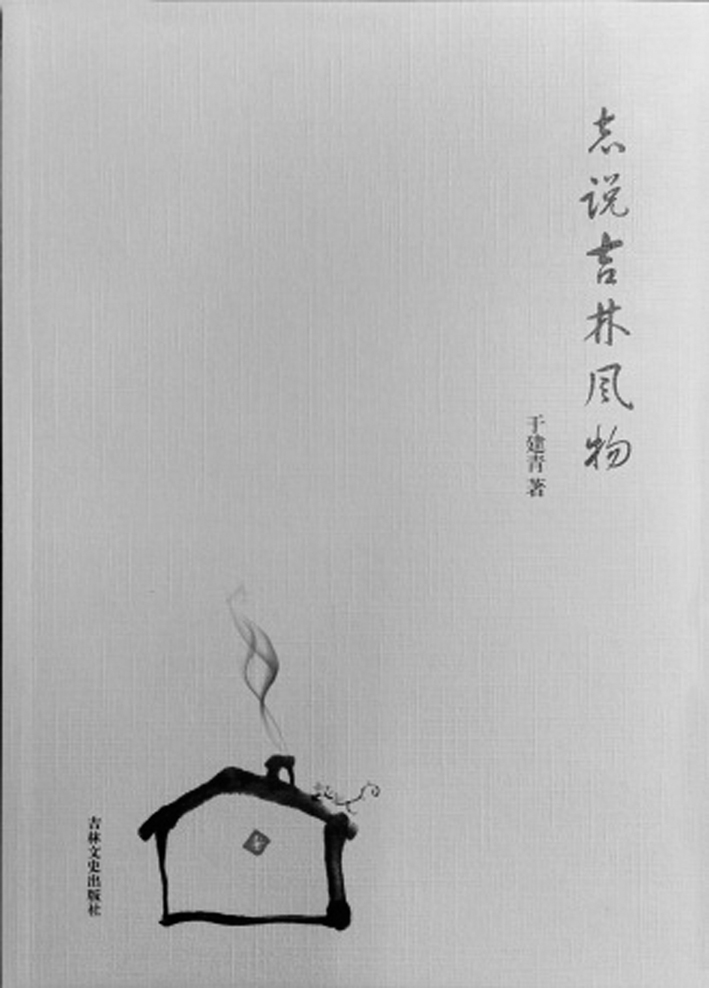 志说吉林风物
于建青 著
吉林文史出版社